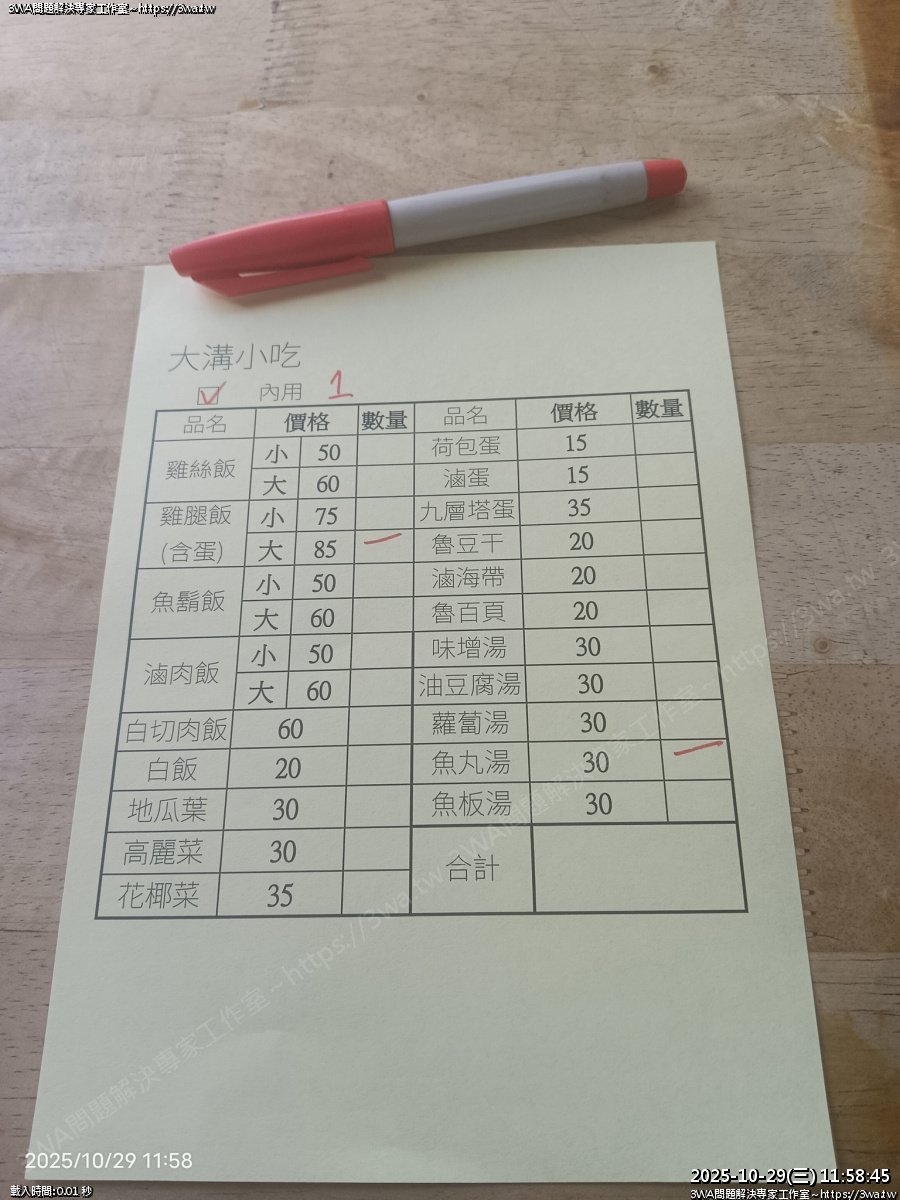 3WA問題解決專家工作室~https://3wa.tw
大溝小吃
☑ 內用 1
品名 價格 數量 品名 價格 數量
雞絲飯 小 50 荷包蛋 15
大 60 滷蛋 15
雞腿飯 小 75 九層塔蛋 35
(含蛋) 大 85 一 魯豆干 20
魚鬍飯 小 50 滷海帶 20
大 60 魯百頁 20
滷肉飯 小 50 味增湯 30
大 60 油豆腐湯 30
白切肉飯 60 蘿蔔湯 30
白飯 20 魚丸湯 30 一
地瓜葉 30 魚板湯 30
高麗菜 30 合計
花椰菜 35
3WA問題解決專家工作室~https://3wa.tw~3WA問題解決專家工作室~https://3wa.tw~3
2025/10/29 11:58
載入時間:0.01 秒
2025-10-29(三) 11:58:45
3WA問題解決專家工作室~https://3wa.tw